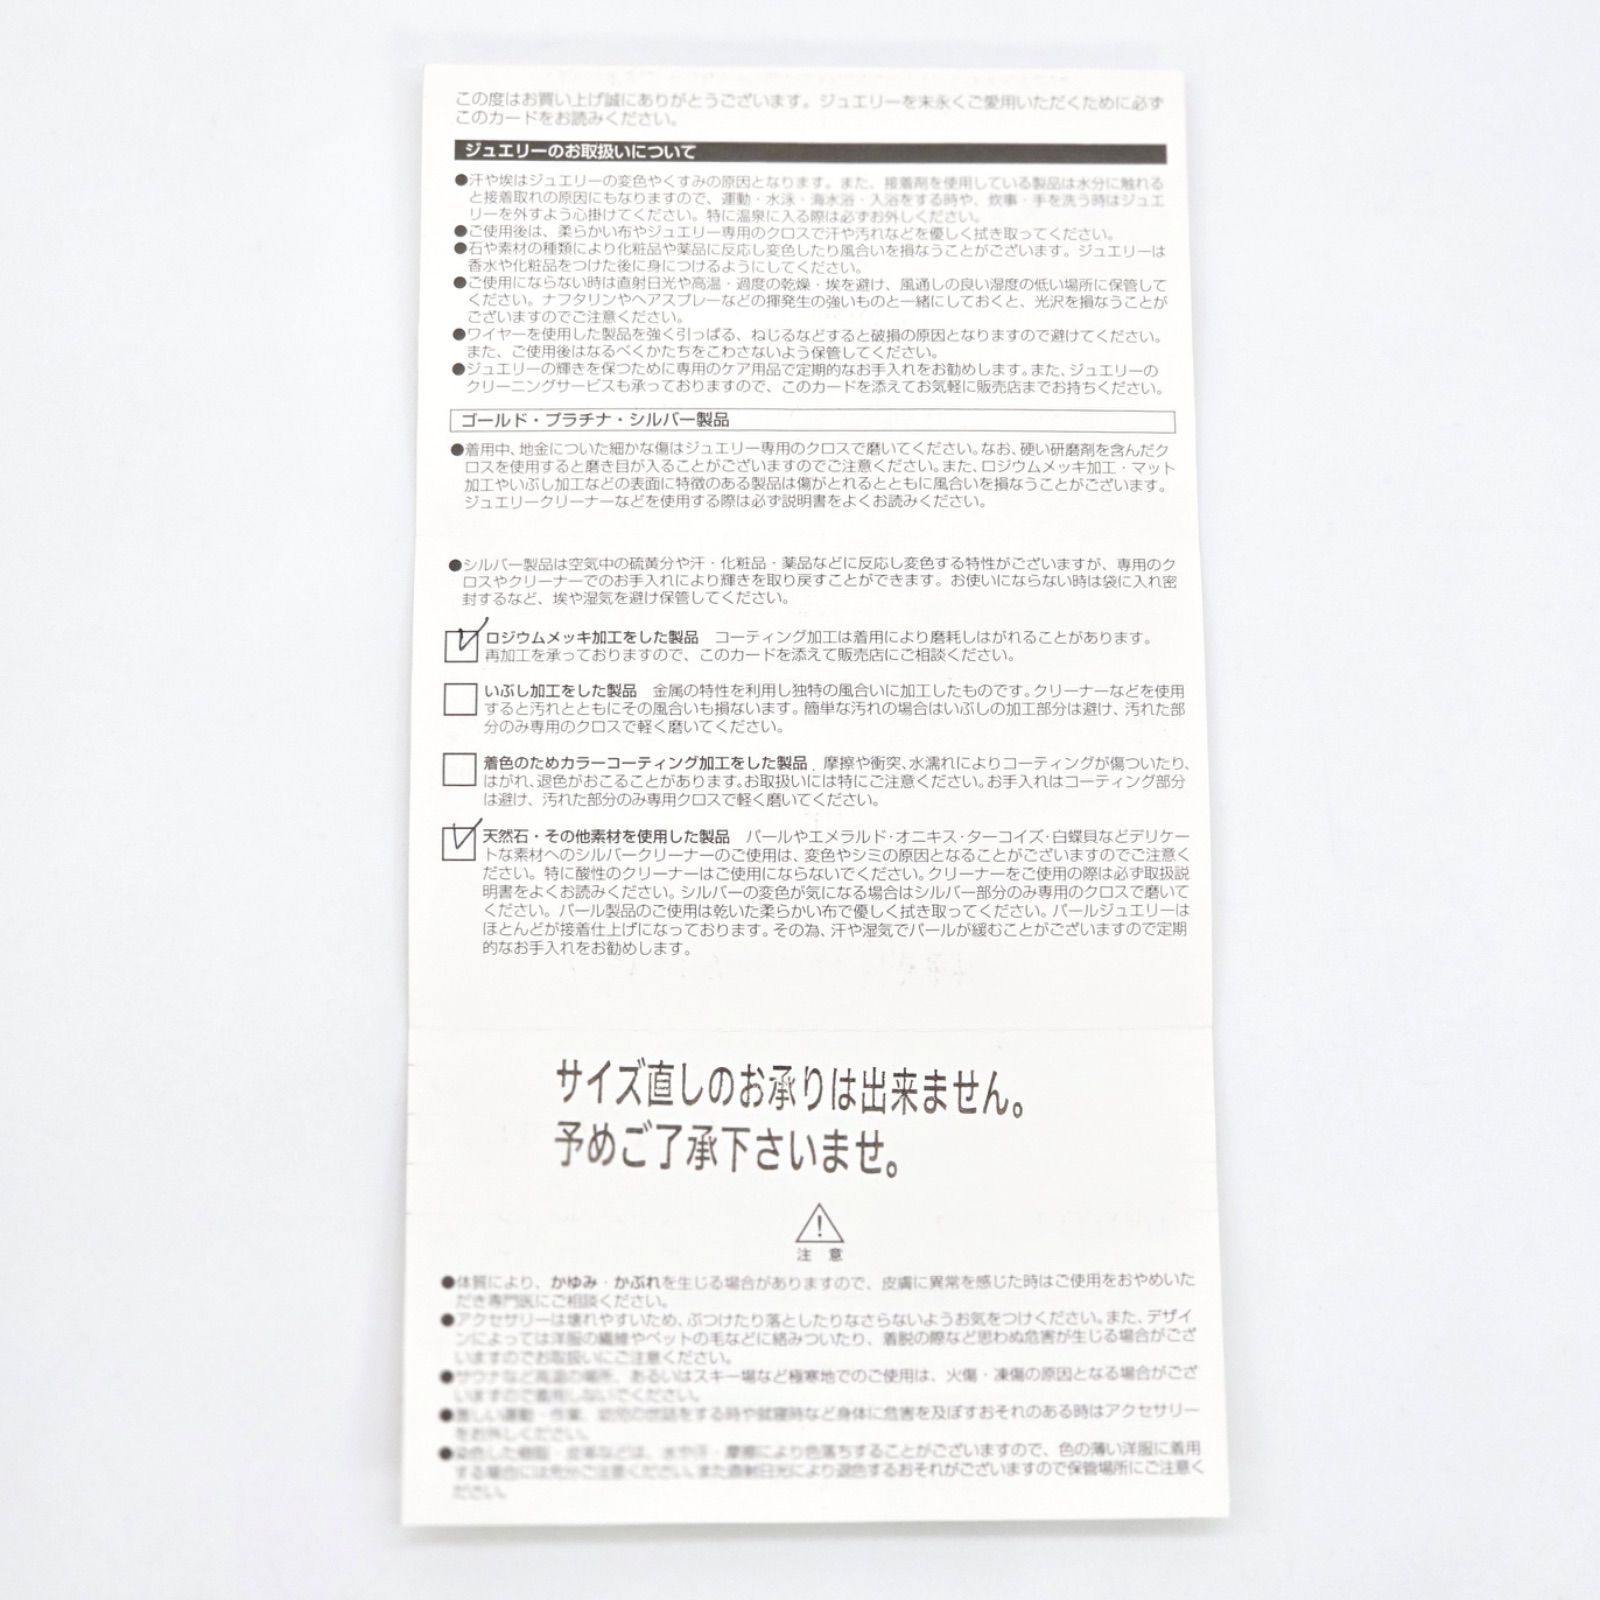 この度はお買い上げ誠にありがとうございます。ジュエリーを末永くご愛用いただくために必ず
このカードをお読みください。
ジュエリーのお取扱いについて
●汗や埃はジュエリーの変色やくすみの原因となります。また、接着剤を使用している製品は水分に触れる
と接着取れの原因にもなりますので、運動・水泳・海水浴・入浴をする時や、炊事・手を洗う時はジュエ
リーを外すよう心掛けてください。特に温泉に入る際は必ずお外しください。
●ご使用後は、柔らかい布やジュエリー専用のクロスで汗や汚れなどを優しく拭き取ってください。
●石や素材の種類により化粧品や薬品に反応し変色したり風合いを損なうことがございます。ジュエリーは
香水や化粧品をつけた後に身につけるようにしてください。
●ご使用にならない時は直射日光や高温・過度の乾燥・埃を避け、風通しの良い湿度の低い場所に保管して
ください。ナフタリンやヘアスプレーなどの揮発生の強いものと一緒にしておくと、光沢を損なうことが
ございますのでご注意ください。
●ワイヤーを使用した製品を強く引っぱる、ねじるなどすると破損の原因となりますので避けてください。
また、ご使用後はなるべくかたちをこわさないよう保管してください。
●ジュエリーの輝きを保つために専用のケア用品で定期的なお手入れをお勧めします。また、ジュエリーの
クリーニングサービスも承っておりますので、このカードを添えてお気軽に販売店までお持ちください。
ゴールド・プラチナ・シルバー製品
●着用中、地金についた細かな傷はジュエリー専用のクロスで磨いてください。なお、硬い研磨剤を含んだク
ロスを使用すると磨き目が入ることがございますのでご注意ください。また、ロジウムメッキ加工・マット
加工やいぶし加工などの表面に特徴のある製品は傷がとれるとともに風合いを損なうことがございます。
ジュエリークリーナーなどを使用する際は必ず説明書をよくお読みください。
●シルバー製品は空気中の硫黄分や汗・化粧品・薬品などに反応し変色する特性がございますが、専用のク
ロスやクリーナーでのお手入れにより輝きを取り戻すことができます。お使いにならない時は袋に入れ密
封するなど、埃や湿気を避け保管してください。
ロジウムメッキ加工をした製品 コーティング加工は着用により磨耗しはがれることがあります。
再加工を承っておりますので、このカードを添えて販売店にご相談ください。
いぶし加工をした製品 金属の特性を利用し独特の風合いに加工したものです。クリーナーなどを使用
すると汚れとともにその風合いも損ないます。簡単な汚れの場合はいぶしの加工部分は避け、汚れた部
分のみ専用のクロスで軽く磨いてください。
着色のためカラーコーティング加工をした製品 摩擦や衝突、水濡れによりコーティングが傷ついたり、
はがれ、退色がおこることがあります。お取扱いには特にご注意ください。お手入れはコーティング部分
は避け、汚れた部分のみ専用クロスで軽く磨いてください。
天然石・その他素材を使用した製品 パールやエメラルド・オニキス・ターコイズ・白蝶貝などデリケー
トな素材へのシルバークリーナーのご使用は、変色やシミの原因となることがございますのでご注意く
ださい。特に酸性のクリーナーはご使用にならないでください。クリーナーをご使用の際は必ず取扱説
明書をよくお読みください。シルバーの変色が気になる場合はシルバー部分のみ専用のクロスで磨いて
ください。パール製品のご使用は乾いた柔らかい布で優しく拭き取ってください。パールジュエリーは
ほとんどが接着仕上げになっております。その為、汗や湿気でパールが緩むことがございますので定期
的なお手入れをお勧めします。
サイズ直しのお承りは出来ません。
予めご了承下さいませ。
注 意
●体質により、かゆみ・かぶれを生じる場合がありますので、皮膚に異常を感じた時はご使用をおやめいた
だき専門医にご相談ください。
●アクセサリーは壊れやすいため、ぶつけたり落としたりなさらないようお気をつけください。また、デザイ
ンによっては洋服の繊維やペットの毛などに絡みついたり、着脱の際など思わぬ危害が生じる場合がござ
いますのでお取扱いにご注意ください。
●サウナなど高温の場所、あるいはスキー場など極寒地でのご使用は、火傷・凍傷の原因となる場合がござ
いますので着用しないでください。
●激しい運動・作業、幼児の世話をする時や就寝時など身体に危害を及ぼすおそれのある時はアクセサリー
をお外しください。
●染色した樹脂・皮革などは、水や汗・摩擦により色落ちすることがございますので、色の薄い洋服に着用
する場合には充分ご注意ください。また直射日光により退色するおそれがございますので保管場所にご注意く
ださい。